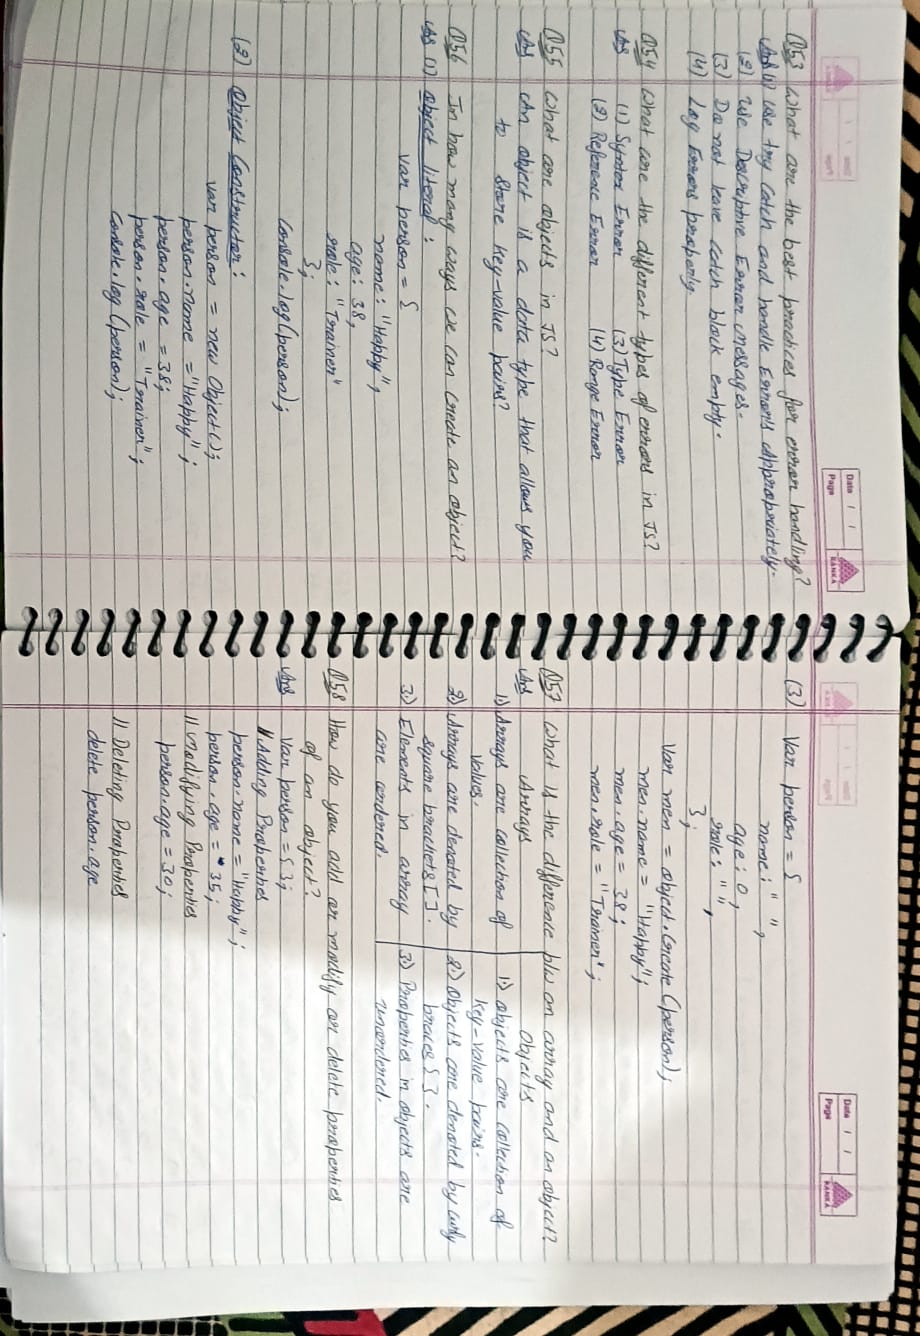 Date / /
Page
RANKA
Q53 What are the best practices for error handling?
Ans (1) Use try catch and handle Errors Appropriately.
(2) Use Descriptive Error messages.
(3) Do not leave catch block empty.
(4) Log Errors properly.
Q54 What are the different types of errors in JS?
Ans (1) Syntax Error (3) Type Error
(2) Reference Error (4) Range Error
Q55 What are objects in JS?
Ans An object is a data type that allows you
to store key-value pairs?
Q56 In how many ways we can create an object?
Ans (1) Object literal:
var person = {
name: "Happy",
age: 38,
role: "Trainer"
};
console.log(person);
(2) Object Constructor:
var person = new Object();
person.name = "Happy";
person.age = 38;
person.role = "Trainer";
console.log(person);
Date / /
Page
RANKA
(3) Var person = {
name: " ",
age: 0,
role: " ",
};
Var men = object.create(person);
men.name = "Happy";
men.age = 38;
men.role = "Trainer";
Q57 What is the difference b/w an array and an object?
Ans Arrays Objects
1) Arrays are collection of values. 1) Objects are collection of key-value pairs.
2) Arrays are denoted by square brackets []. 2) Objects are denoted by curly braces {}.
3) Elements in array are ordered. 3) Properties in objects are unordered.
Q58 How do you add or modify or delete properties
of an object?
Ans Var person = {};
// Adding Properties
person.name = "Happy";
person.age = 35;
// Modifying Properties
person.age = 30;
// Deleting Properties
delete person.age